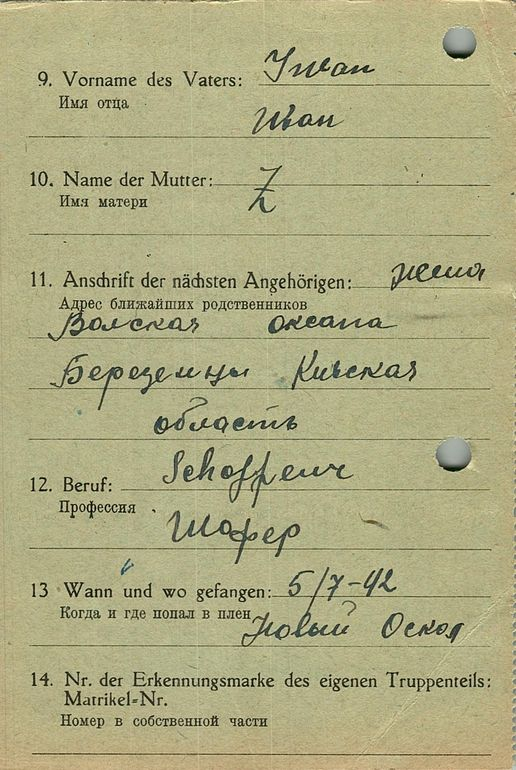 9. Vorname des Vaters: Iwan
Имя отца
Иван
10. Name der Mutter: Z
Имя матери
11. Anschrift der nächsten Angehörigen: жена
Адрес ближайших родственников
Вольская оксана
Береземцы Киевская
область
12. Beruf:
Профессия
Шофер
13 Wann und wo gefangen: 5/7-42
Когда и где попал в плен Новый Оскол
14. Nr. der Erkennungsmarke des eigenen Truppenteils:
Matrikel-Nr.
Номер в собственной части